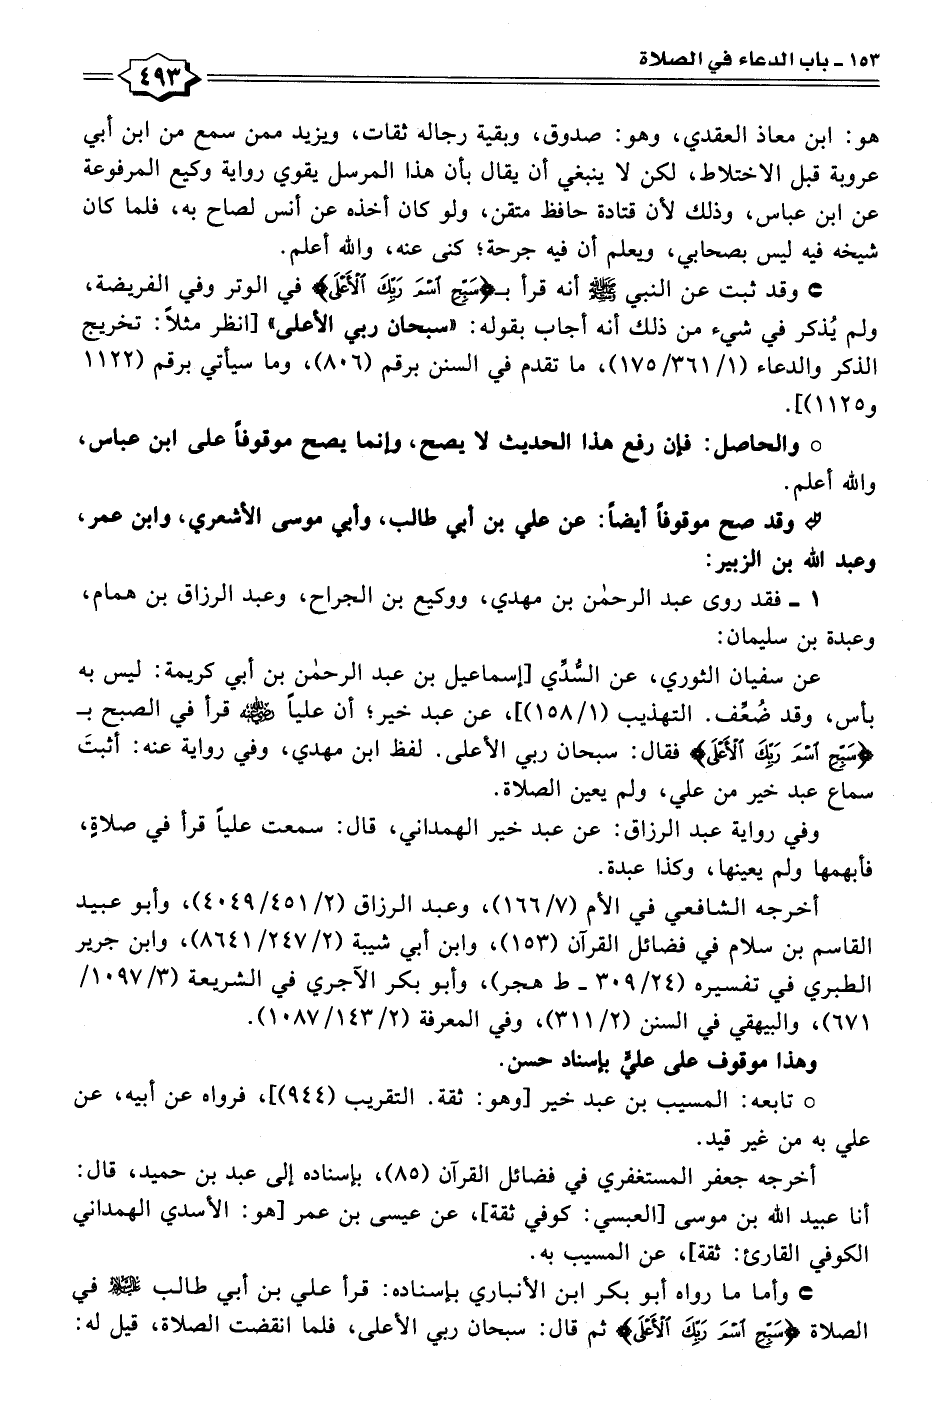 ١٥٣ - باب الدعاء في الصلاة
٤٩٣
هو: ابن معاذ العقدي، وهو: صدوق، وبقية رجاله ثقات، ويزيد ممن سمع من ابن أبي
عروبة قبل الاختلاط، لكن لا ينبغي أن يقال بأن هذا المرسل يقوي رواية وكيع المرفوعة
عن ابن عباس، وذلك لأن قتادة حافظ متقن، ولو كان أخذه عن أنس لصاح به، فلما كان
شيخه فيه ليس بصحابي، ويعلم أن فيه جرحة؛ كنى عنه، والله أعلم.
وقد ثبت عن النبي ﷺ أنه قرأ بـ﴿سَبِّحِ ٱسْمَ رَبِّكَ ٱلْأَعْلَى﴾ في الوتر وفي الفريضة،
ولم يُذكر في شيء من ذلك أنه أجاب بقوله: «سبحان ربي الأعلى» [انظر مثلاً: تخريج
الذكر والدعاء (١/٣٦١/١٧٥)، ما تقدم في السنن برقم (٨٠٦)، وما سيأتي برقم (١١٢٢
و١١٢٥)].
○ والحاصل: فإن رفع هذا الحديث لا يصح، وإنما يصح موقوفاً على ابن عباس،
والله أعلم.
وقد صح موقوفاً أيضاً: عن علي بن أبي طالب، وأبي موسى الأشعري، وابن عمر،
وعبد الله بن الزبير:
١ - فقد روى عبد الرحمٰن بن مهدي، ووكيع بن الجراح، وعبد الرزاق بن همام،
وعبدة بن سليمان:
عن سفيان الثوري، عن السُّدِّي [إسماعيل بن عبد الرحمٰن بن أبي كريمة: ليس به
بأس، وقد ضُعِّف. التهذيب (١/١٥٨)]، عن عبد خير؛ أن علياً رضي الله عنه قرأ في الصبح بـ
﴿سَبِّحِ ٱسْمَ رَبِّكَ ٱلْأَعْلَى﴾ فقال: سبحان ربي الأعلى. لفظ ابن مهدي، وفي رواية عنه: أثبتَ
سماع عبد خير من علي، ولم يعين الصلاة.
وفي رواية عبد الرزاق: عن عبد خير الهمداني، قال: سمعت علياً قرأ في صلاةٍ،
فأبهمها ولم يعينها، وكذا عبدة.
أخرجه الشافعي في الأم (٧/١٦٦)، وعبد الرزاق (٢/٤٥١/٤٠٤٩)، وأبو عبيد
القاسم بن سلام في فضائل القرآن (١٥٣)، وابن أبي شيبة (٢/٢٤٧/٨٦٤١)، وابن جرير
الطبري في تفسيره (٢٤/٣٠٩ - ط هجر)، وأبو بكر الآجري في الشريعة (٣/١٠٩٧/
٦٧١)، والبيهقي في السنن (٢/٣١١)، وفي المعرفة (٢/١٤٣/١٠٨٧).
وهذا موقوف على عليٍّ بإسناد حسن.
○ تابعه: المسيب بن عبد خير [وهو: ثقة. التقريب (٩٤٤)]، فرواه عن أبيه، عن
علي به من غير قيد.
أخرجه جعفر المستغفري في فضائل القرآن (٨٥)، بإسناده إلى عبد بن حميد، قال:
أنا عبيد الله بن موسى [العبسي: كوفي ثقة]، عن عيسى بن عمر [هو: الأسدي الهمداني
الكوفي القارئ: ثقة]، عن المسيب به.
وأما ما رواه أبو بكر ابن الأنباري بإسناده: قرأ علي بن أبي طالب عليه السلام في
الصلاة ﴿سَبِّحِ ٱسْمَ رَبِّكَ ٱلْأَعْلَى﴾ ثم قال: سبحان ربي الأعلى، فلما انقضت الصلاة، قيل له: